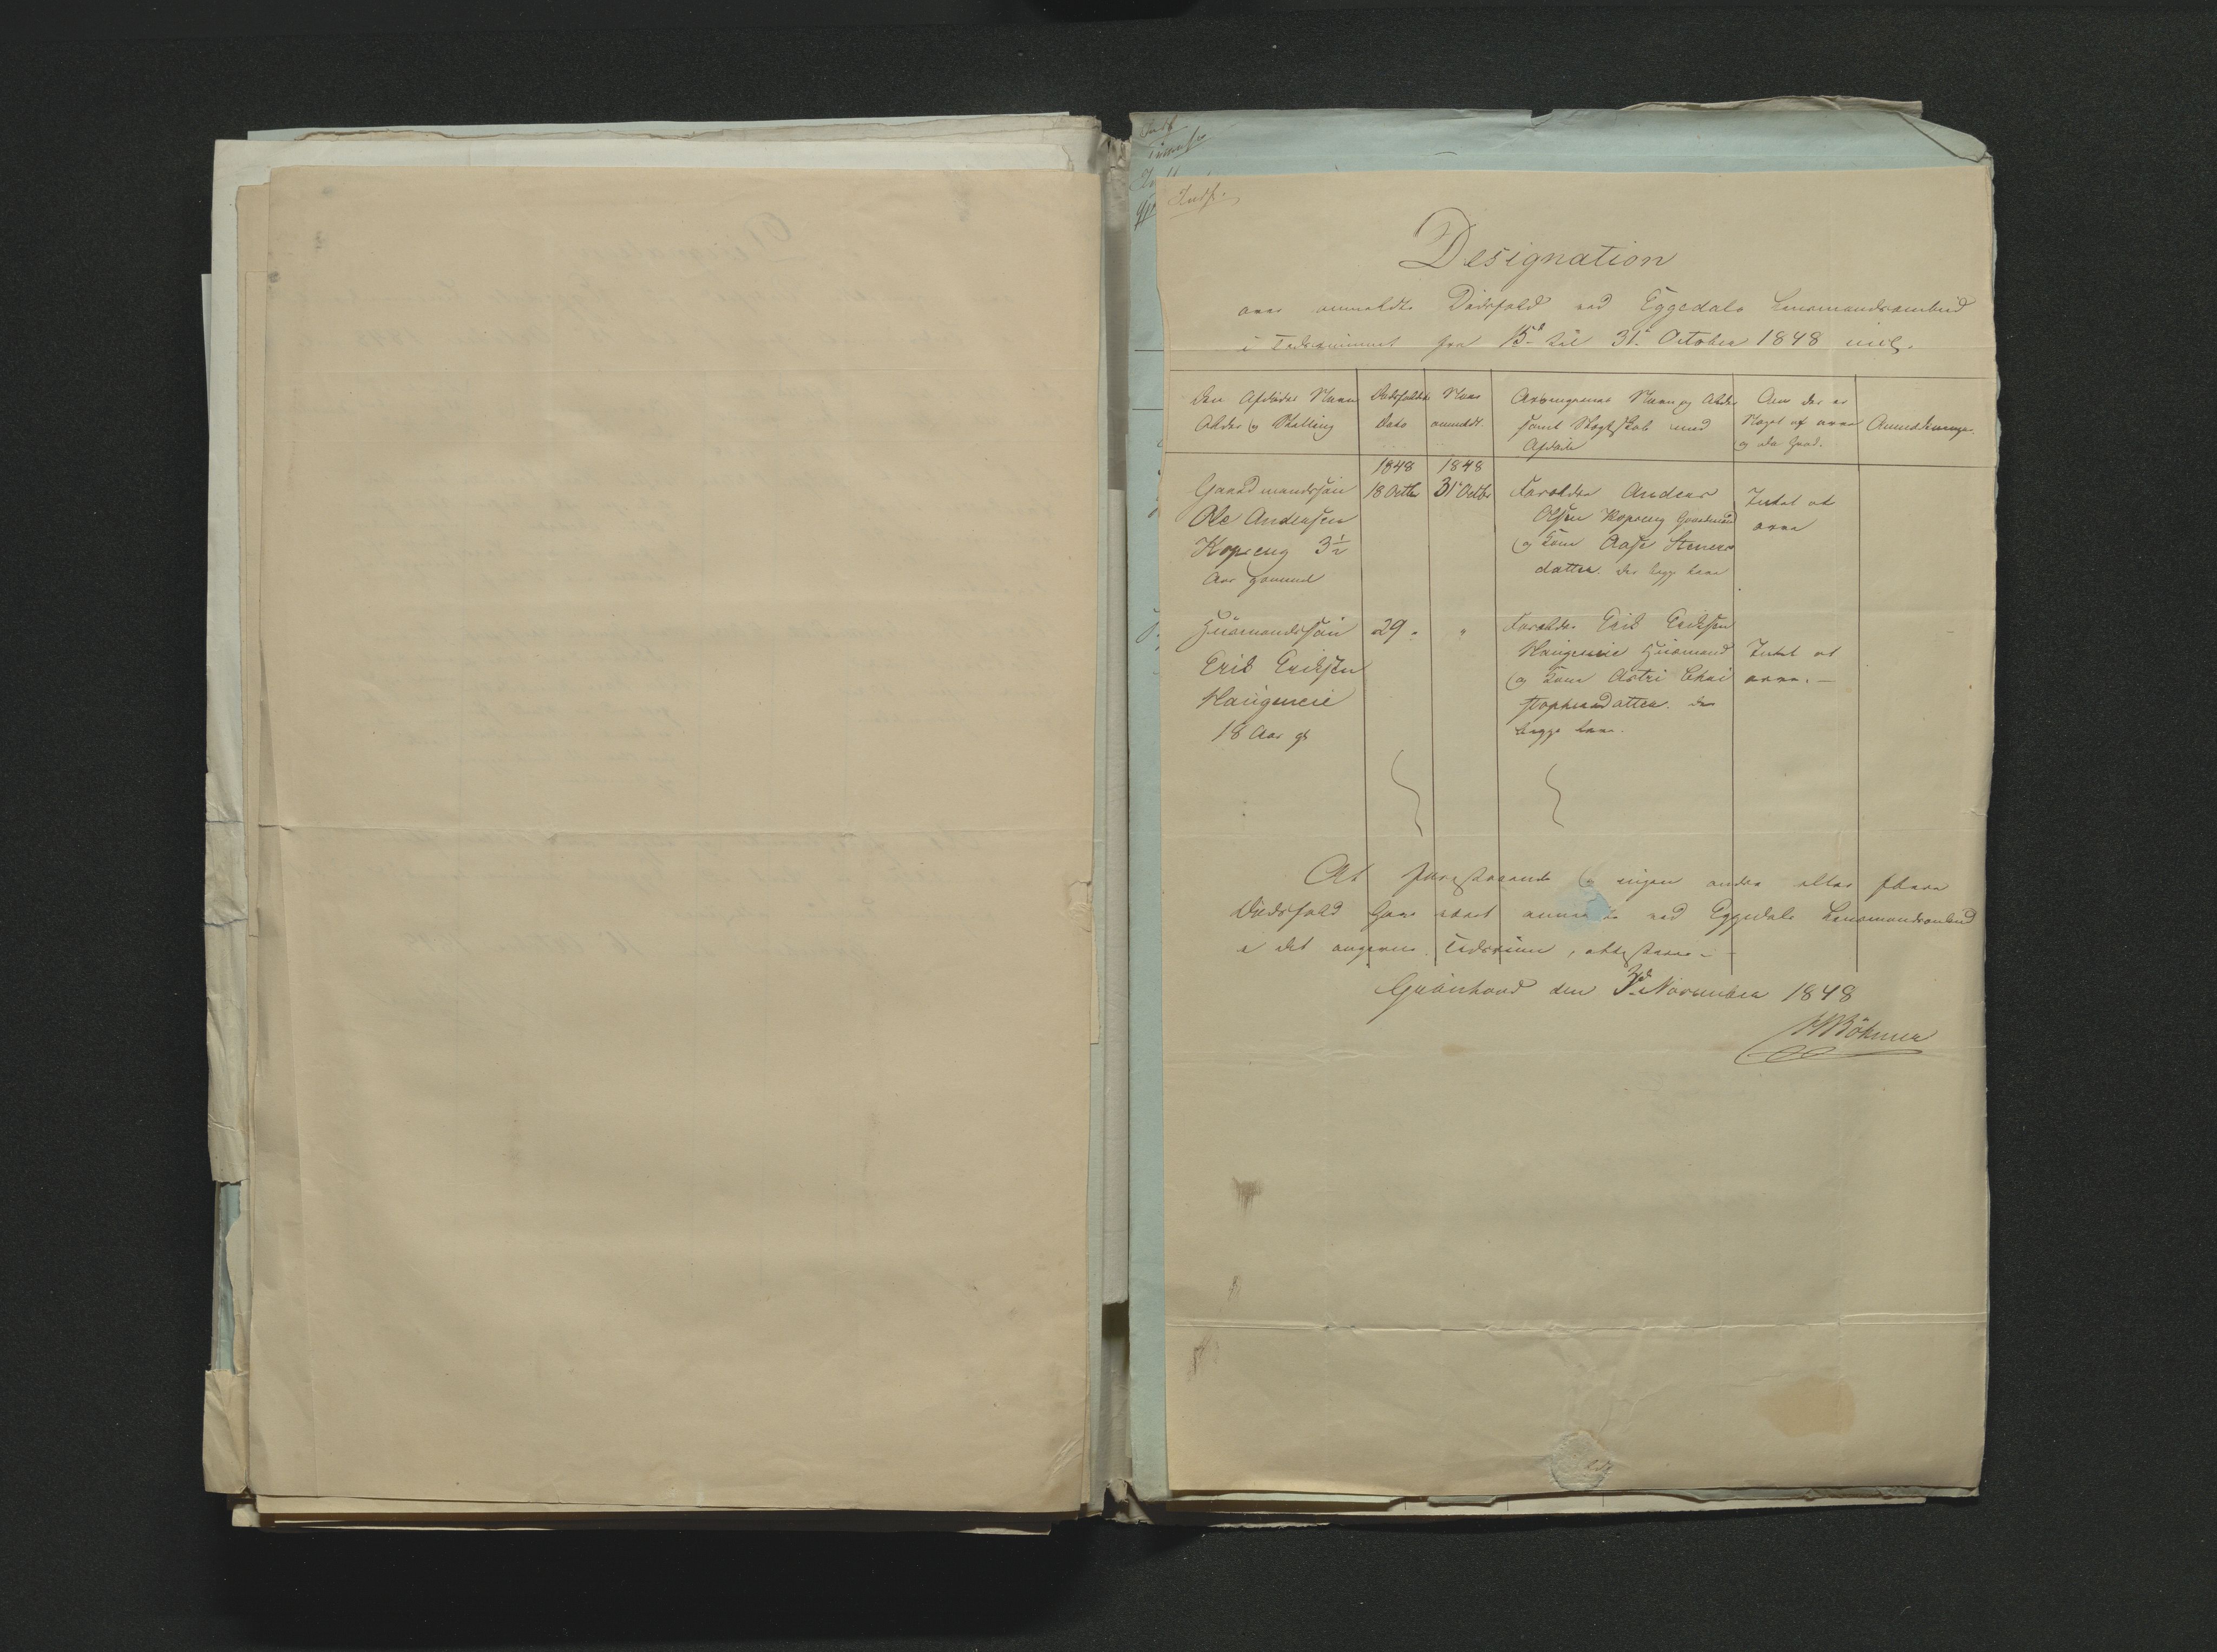 Indf.
Designation
over anmeldte Dødsfald ved Eggedals Lensmandsombud
i Tidsrummet fra 15de til 31te October 1848 incl.
Den Afdødes Navn
Alder og Stilling
Dødsfaldets
Dato
Naar
anmeldt.
Arvingernes Navn og Alder
samt Slægtskab med
Afdøde
Om der er
Noget at arve
og da hvad.
Anmærkninger.
1848
1848
Gaardmandssøn
Ole Andersen
Kopseng 3½
Aar gammel
18 Octbr
31te Octbr
Forældre Anders
Olsen Kopseng Gaardmand
og Kone Aase Steners
datter. der begge leve
Intet at
arve
Huusmandssøn
Erik Eriksen
Haugeneie
18 Aar gl
29 "
"
Forældre Erik Eriksen
Haugeneie Huusmand
og Kone Astri Chri
stophersdatter. der
begge leve.
Intet at
arve. —
At forestaaende og ingen andre eller flere
Dødsfald have været anmeldte ved Eggedals Lensmandsombud
i det angivne Tidsrum, attesteres. —
Grønhovd den 3de November 1848
Böhmer